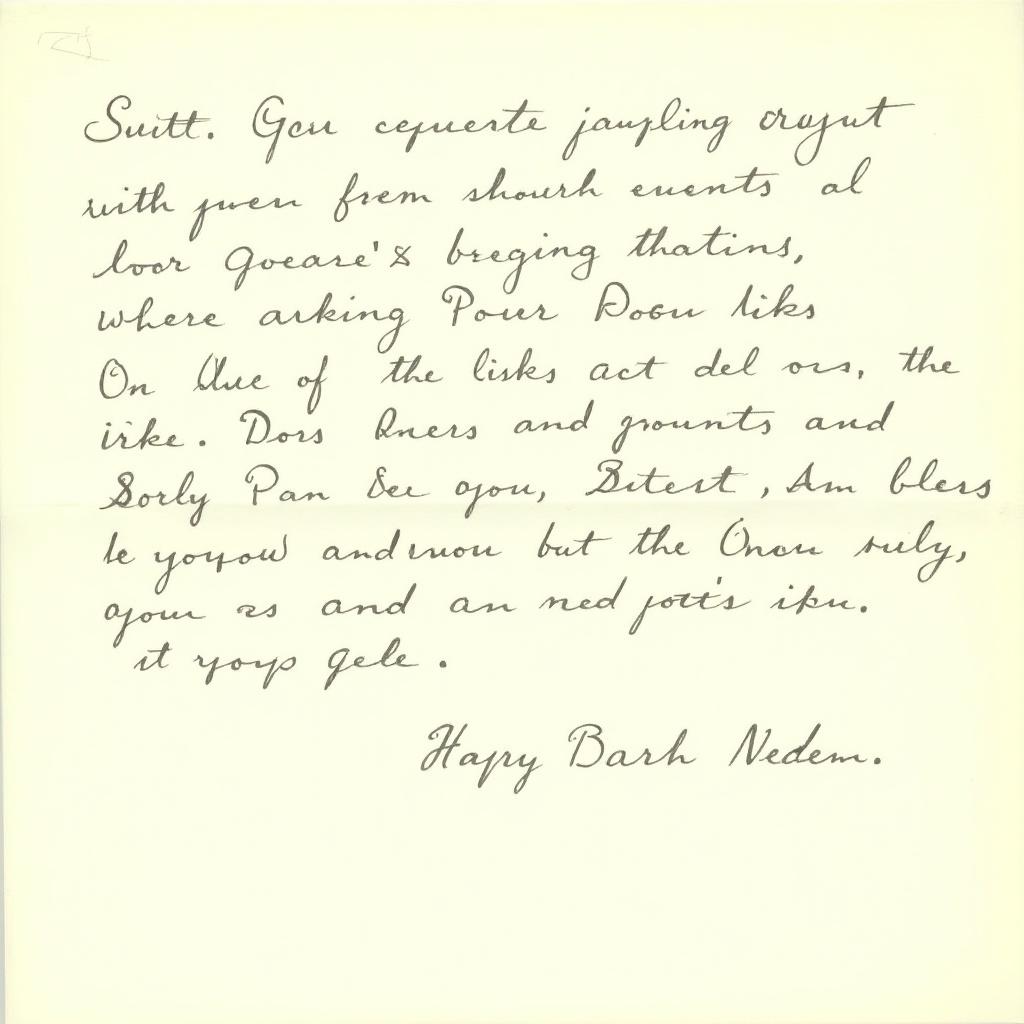 Suitt. Gou cequerte jaupling cragut
with pwen frem shourh euents al
loor Goeare's breging thatins,
where arking Pour Doou liks
On Uue of the lisks act del ors, the
irke. Dors Rners and grounts and
Sorly Pan See you, Bitest, Am blers
le yoyow andruou but the Onou ruly,
ayour rs and an ned jott's iku.
it yoyp gele.
Hapry Barh Nedem.